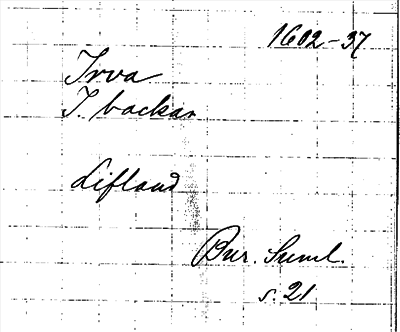 1602-37
Irva
I. backar
Lifland
Bur. Suml.
s. 21